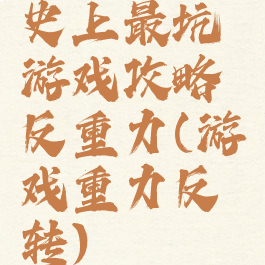 史上最坑
游戏攻略
反重力(游
戏重力反
转)